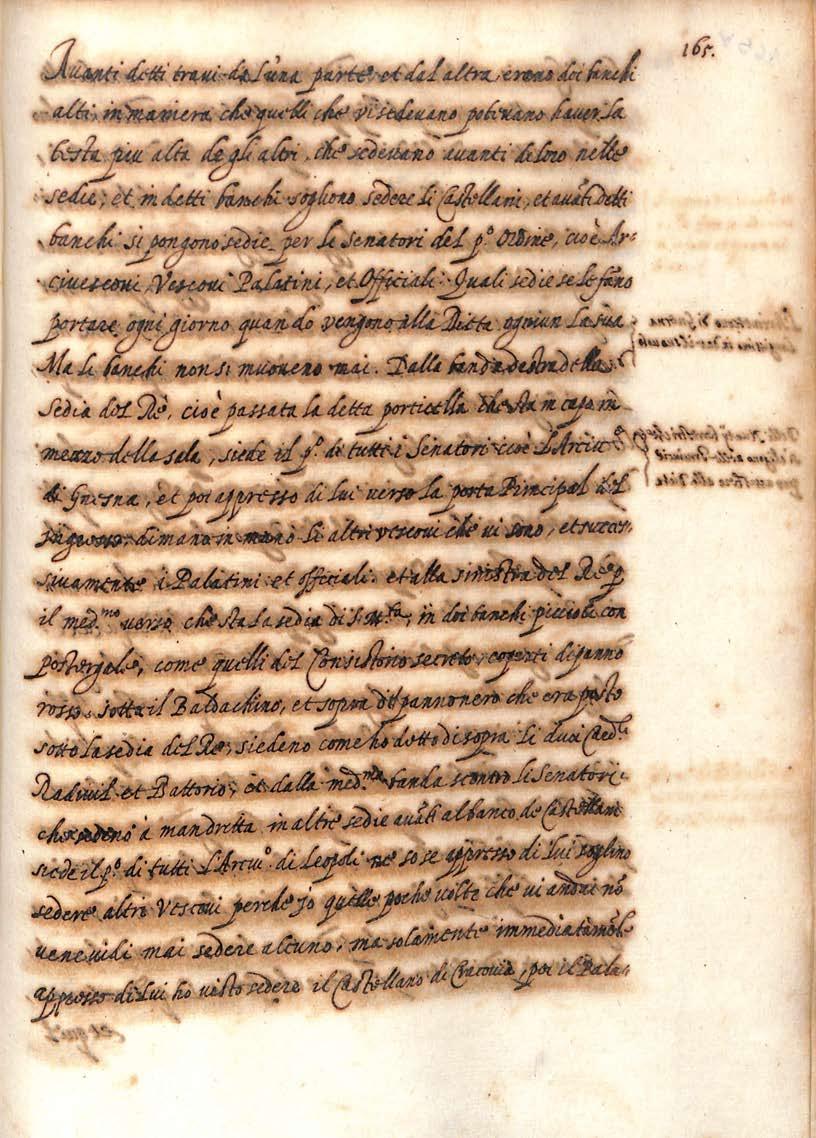 165.
Avanti detti travi da l'una parte et dal altra erano doi banchi
alti, in maniera che quelli che vi sedevano potevano haver la
testa piu alta de gli altri, che sedevano avanti de loro nelle
sedie; et in detti banchi sogliono sedere li Castellani, et auāti detti
banchi si pongono sedie per li Senatori del p.º Ordine, cioè Ar-
civescovi, Vescovi Palatini, et Officiali. Quali sedie se le fāno
portare ogni giorno quando vengono alla Dieta ogniun la sua
Ma li banchi non si muoveno mai. Dalla banda destra della
Sedia del Rè, cioè passata la detta porticella che sta in capo in
mezzo della sala, siede il p.º de tutti i Senatori cioè l'Arciv.º
di Gnesna, et poi appresso di lui verso la porta Principal del
di mano in mano li altri vescovi che vi sono, et succes-
sivamente i Palatini et officiali. et alla sinistra del Rè p
il med.mo verso che sta la sedia di S. M.tà, in doi banchi piccioli con
postergale, come quelli del Consistorio secreto, coperti di panno
rosso, sotto il Baldachino, et sopra del panno nero che era posto
sotto la sedia del Rè, siedeno come ho detto di sopra li duci Card.li
Radivil et Battorio, et dalla med.ma banda scontro li Senatori
che sedeno à mandretta in altre sedie auāti al banco de Castellani
siede il p.º di tutti l'Arciv.º di Leopoli ne so se appresso di lui soglino
sedere altri Vescovi perche io quelle poche volte che vi andai nō
vene vidi mai sedere alcuno, ma solamente immediatamēte
appresso di lui ho visto sedere il Castellano di Cracovia, poi il Pala-